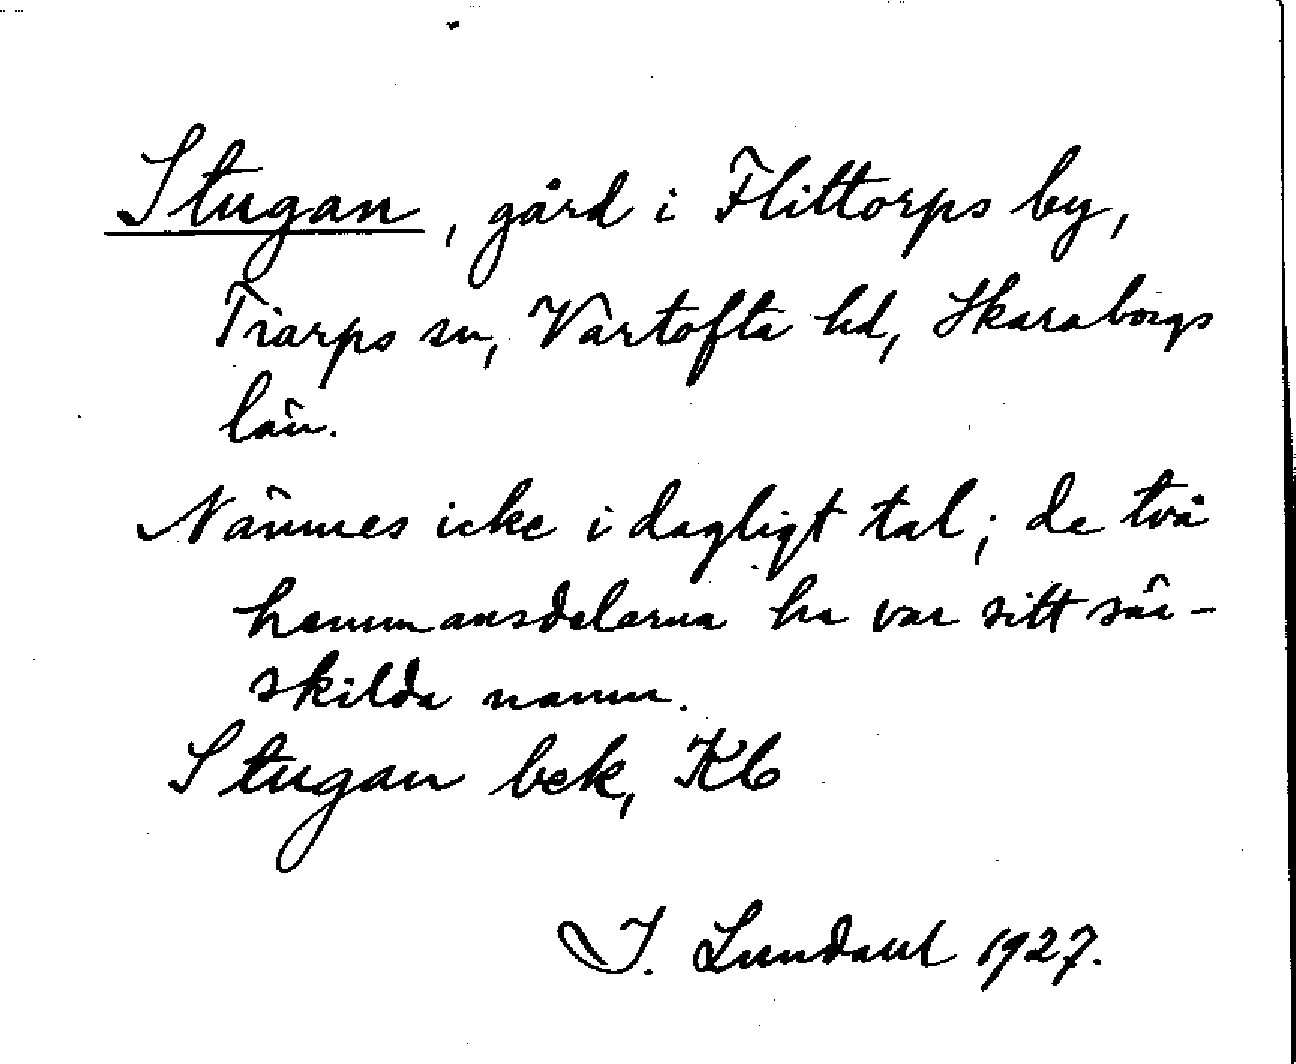 Stugan, gård i Flittorps by,
Tiarps sn, Vartofta hd, Skaraborgs
län.
Nämnes icke i dagligt tal; de två
hemmansdelarna ha var sitt sär-
skilda namn.
Stugan bek, Kb
J. Lundahl 1927.